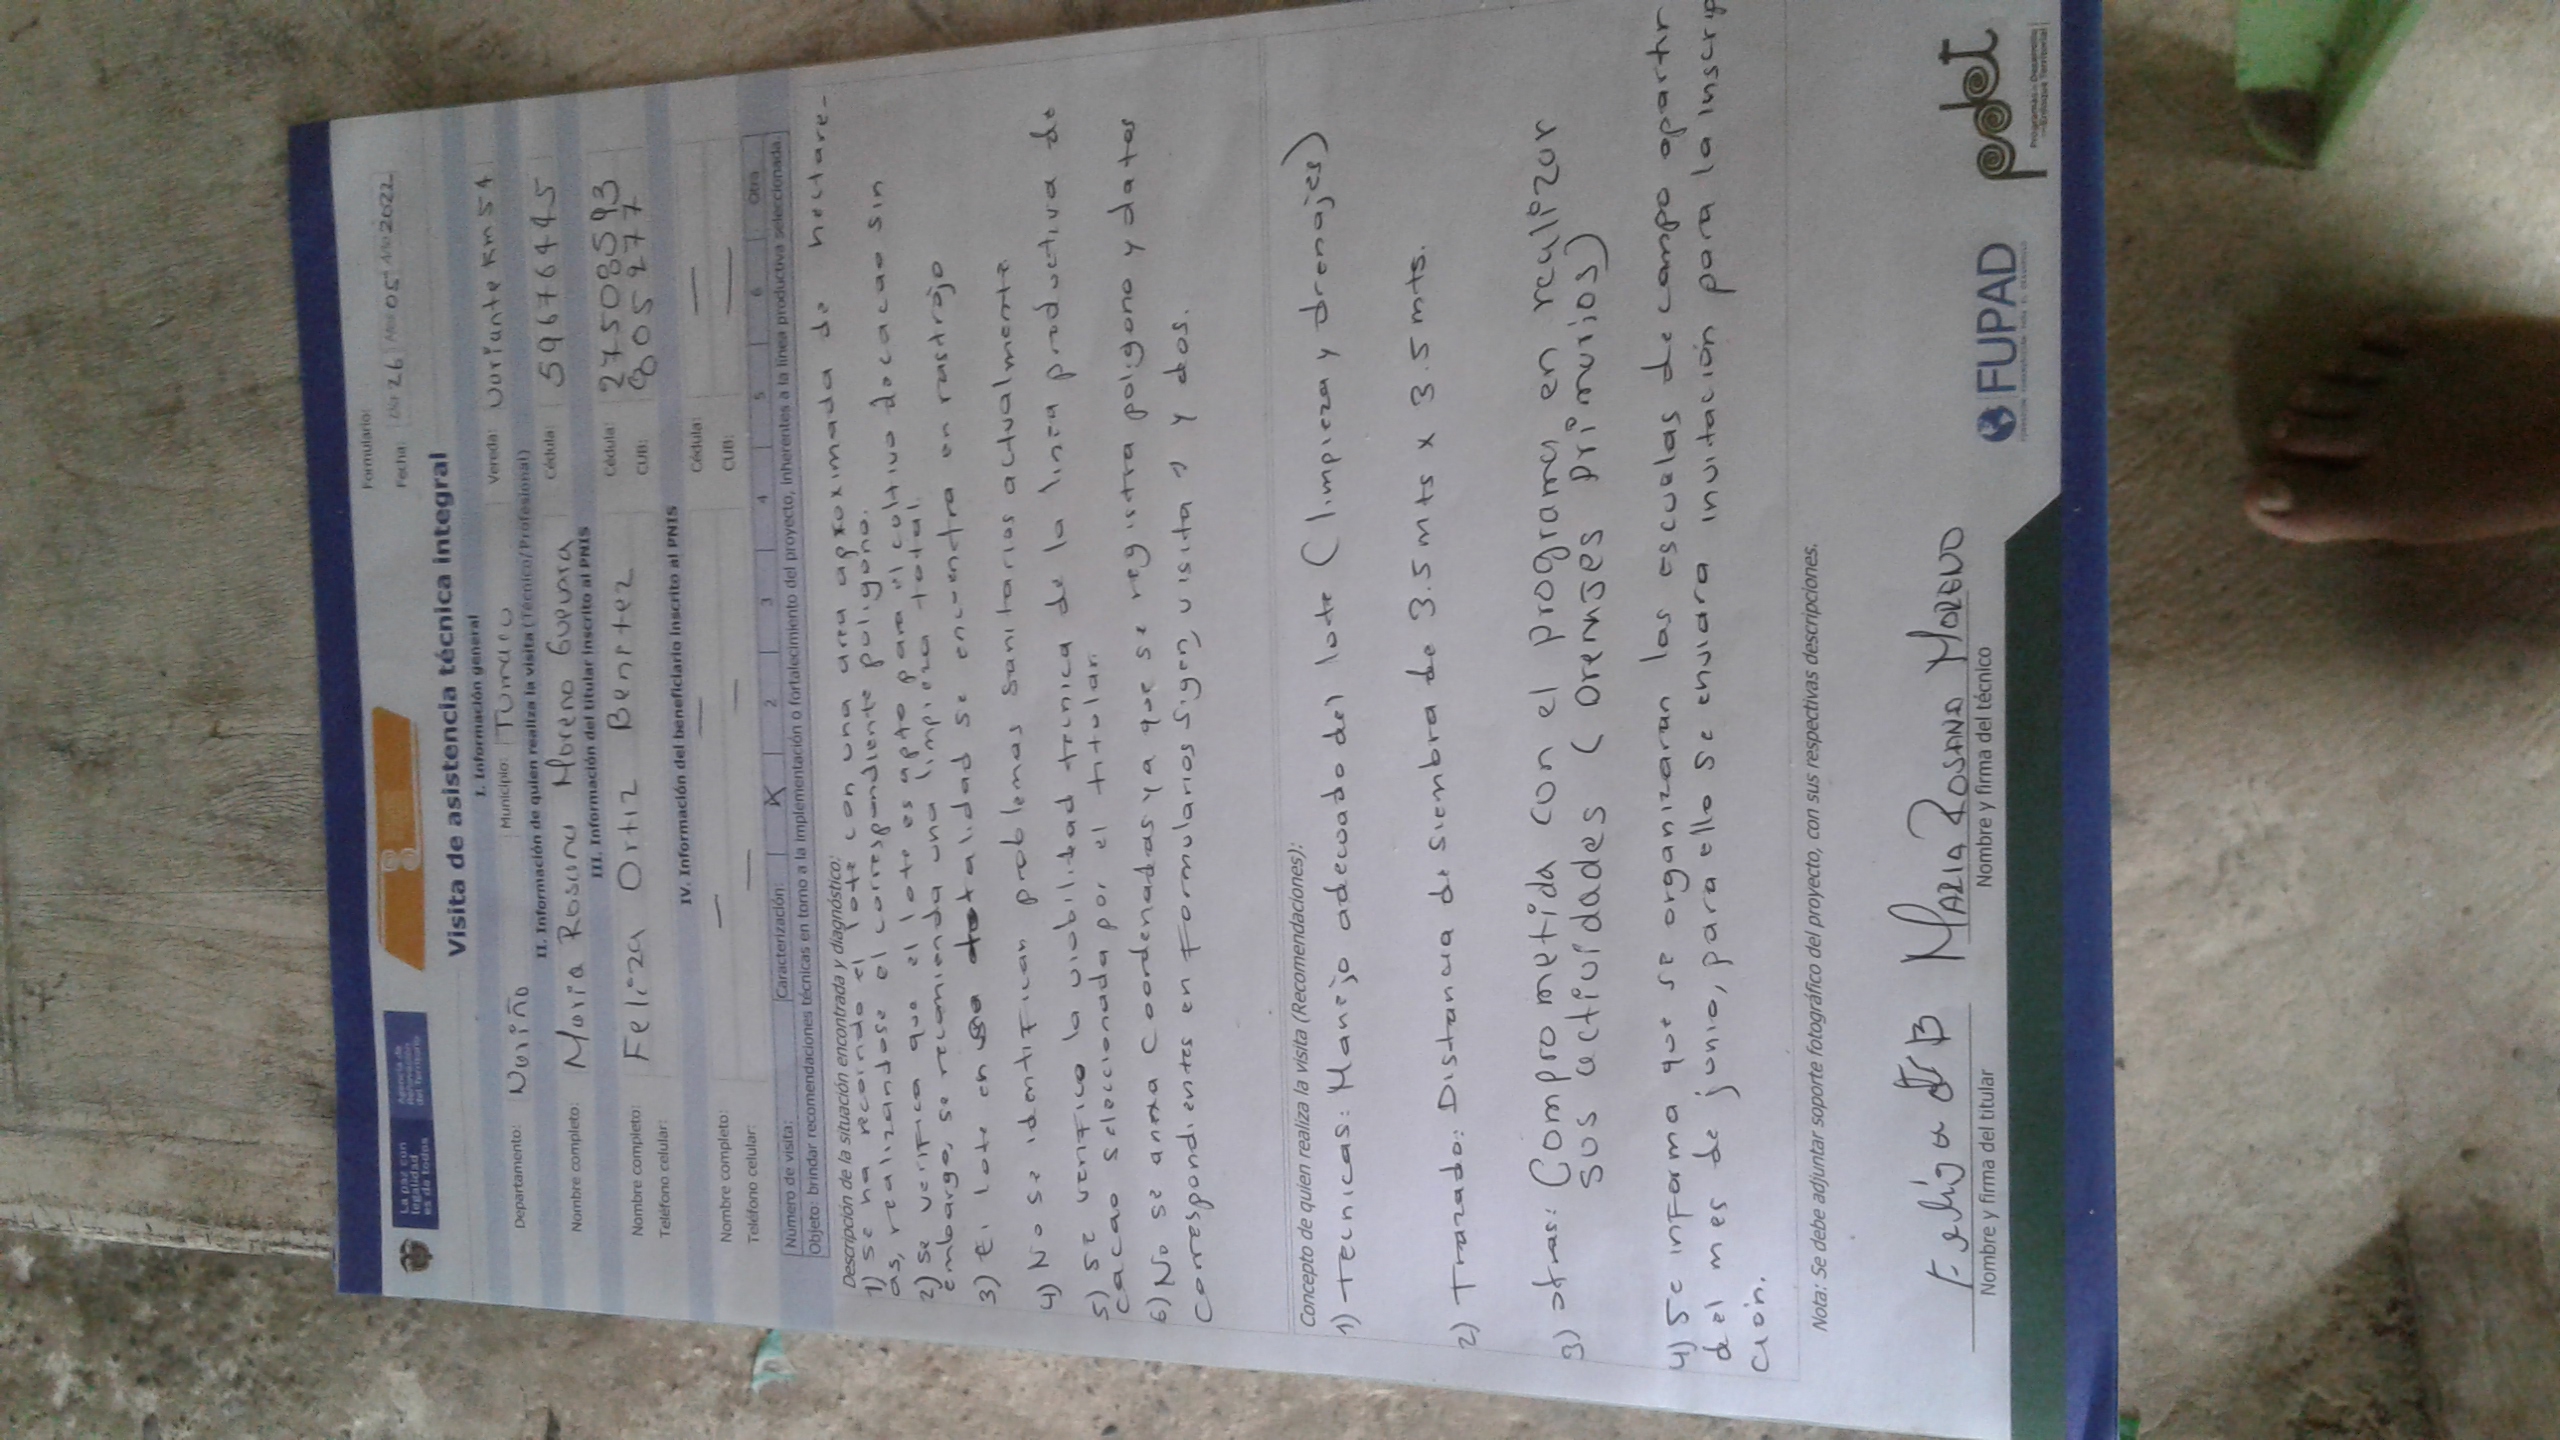 La paz con
legalidad
es de todos
Agencia de
Renovación
del Territorio
Formulario:
Fecha: Día 26 Mes 05 Año 2022
Visita de asistencia técnica integral
I. Información general
Departamento: Nariño Municipio: Tumaco Vereda: Variante Km 54
II. Información de quien realiza la visita (Técnico/Profesional)
Nombre completo: Maria Rosana Moreno Guevara Cédula: 59676445
III. Información del titular inscrito al PNIS
Nombre completo: Feliza Ortiz Benitez Cédula: 27508593
Teléfono celular: CUB: 8052777
IV. Información del beneficiario inscrito al PNIS
Nombre completo: — — Cédula: —
Teléfono celular: — — CUB: —
Número de visita: Caracterización: X 2 3 4 5 6 Otra
Objeto: brindar recomendaciones técnicas en torno a la implementación o fortalecimiento del proyecto, inherentes a la línea productiva seleccionada.
Descripción de la situación encontrada y diagnóstico:
1) se ha recorrido el lote con una area aproximada de hectare-
as, realizandose el correspondiente poligono.
2) se verifica que el lote es apto para el cultivo de cacao sin
embargo, se recomienda una limpieza total.
3) El lote en totalidad se encuentra en rastrojo
4) No se identifican problemas sanitarios actualmente
5) Se verifico la viabilidad tecnica de la linea productiva de
cacao seleccionada por el titular
6) No se anexa coordenadas ya que se registra poligono y datos
correspondientes en formularios sigen, visita 1 y dos.
Concepto de quien realiza la visita (Recomendaciones):
1) tecnicas: Manejo adecuado del lote (limpieza y drenajes)
2) Trazado: Distancia de siembra de 3.5 mts x 3.5 mts.
3) otras: Comprometida con el programa, en realizar
sus actividades (Drenajes primarios)
4) Se informa que se organizaran las escuelas de campo apartir
del mes de junio, para ello se enviara invitación para la inscrip
ción.
Nota: Se debe adjuntar soporte fotográfico del proyecto, con sus respectivas descripciones.
MARIA ROSANA MORENO
Nombre y firma del titular Nombre y firma del técnico
FUPAD
pdet
Programas de Desarrollo
con Enfoque Territorial